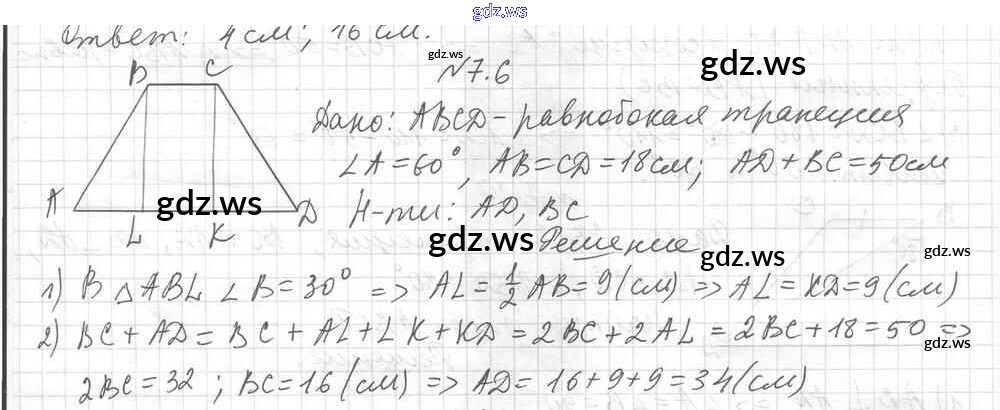 gdz.ws
Ответ: 4 см; 16 см.
gdz.ws
gdz.ws
N 7.6
B C
Дано: ABCD - равнобокая трапеция
∠A = 60°, AB = CD = 18 см; AD + BC = 50 см
A D
gdz.ws
L K
Н-ти: AD, BC
gdz.ws
Решение
gdz.ws
1) В △ABL ∠B = 30° => AL = 1/2 AB = 9 (см) => AL = KD = 9 (см)
gdz.ws
2) BC + AD = BC + AL + LK + KD = 2BC + 2AL = 2BC + 18 = 50 =>
gdz.ws
2BC = 32; BC = 16 (см) => AD = 16 + 9 + 9 = 34 (см)
gdz.ws